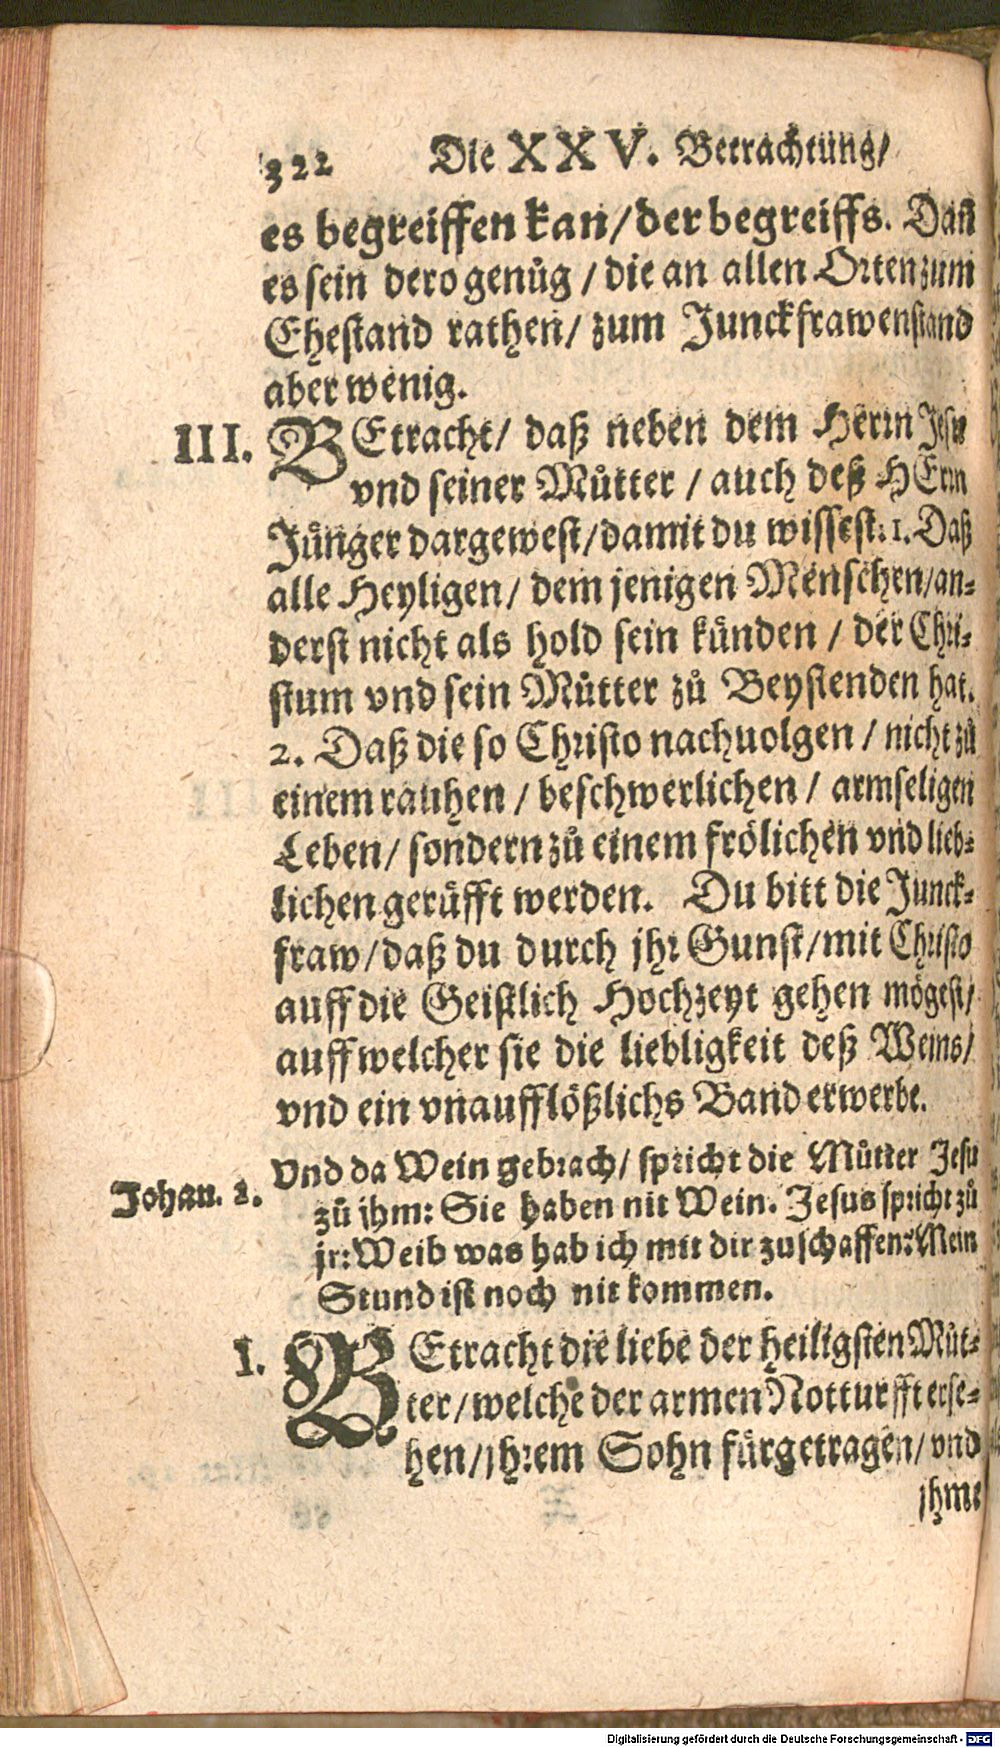 322 Die XXV. Betrachtung/
es begreiffen kan/der begreiffs. Dañ
es sein dero genůg / die an allen Orten zum
Ehestand rathen/ zum Junckfrawenstand
aber wenig.
III. BEtracht/ daß neben dem Herrn Jesu
vnd seiner Můtter / auch deß HErrn
Jünger dargewest/damit du wissest: 1. Daß
alle Heyligen/ dem jenigen Menschen/an-
derst nicht als hold sein künden / der Chri-
stum vnd sein Můtter zů Beystenden hat.
2. Daß die so Christo nachuolgen / nicht zů
einem rauhen / beschwerlichen / armseligen
Leben/ sondern zů einem frölichen vnd lieb-
lichen gerüfft werden. Du bitt die Junck-
fraw/daß du durch jhr Gunst/mit Christo
auff die Geistlich Hochzeyt gehen mögest/
auff welcher sie die liebligkeit deß Weins/
vnd ein vnaufflößlichs Band erwerbe.
Vnd da Wein gebrach/ spricht die Můtter Jesu
Johan. 2. zů jhm: Sie haben nit Wein. Jesus spricht zů
jr: Weib was hab ich mit dir zuschaffen? Mein
Stund ist noch nit kommen.
I. BEtracht die liebe der heiligsten Můt-
ter/welche der armen Notturfft erse-
hen/jhrem Sohn fürgetragen/vnd
jhme
Digitalisierung gefördert durch die Deutsche Forschungsgemeinschaft - DFG